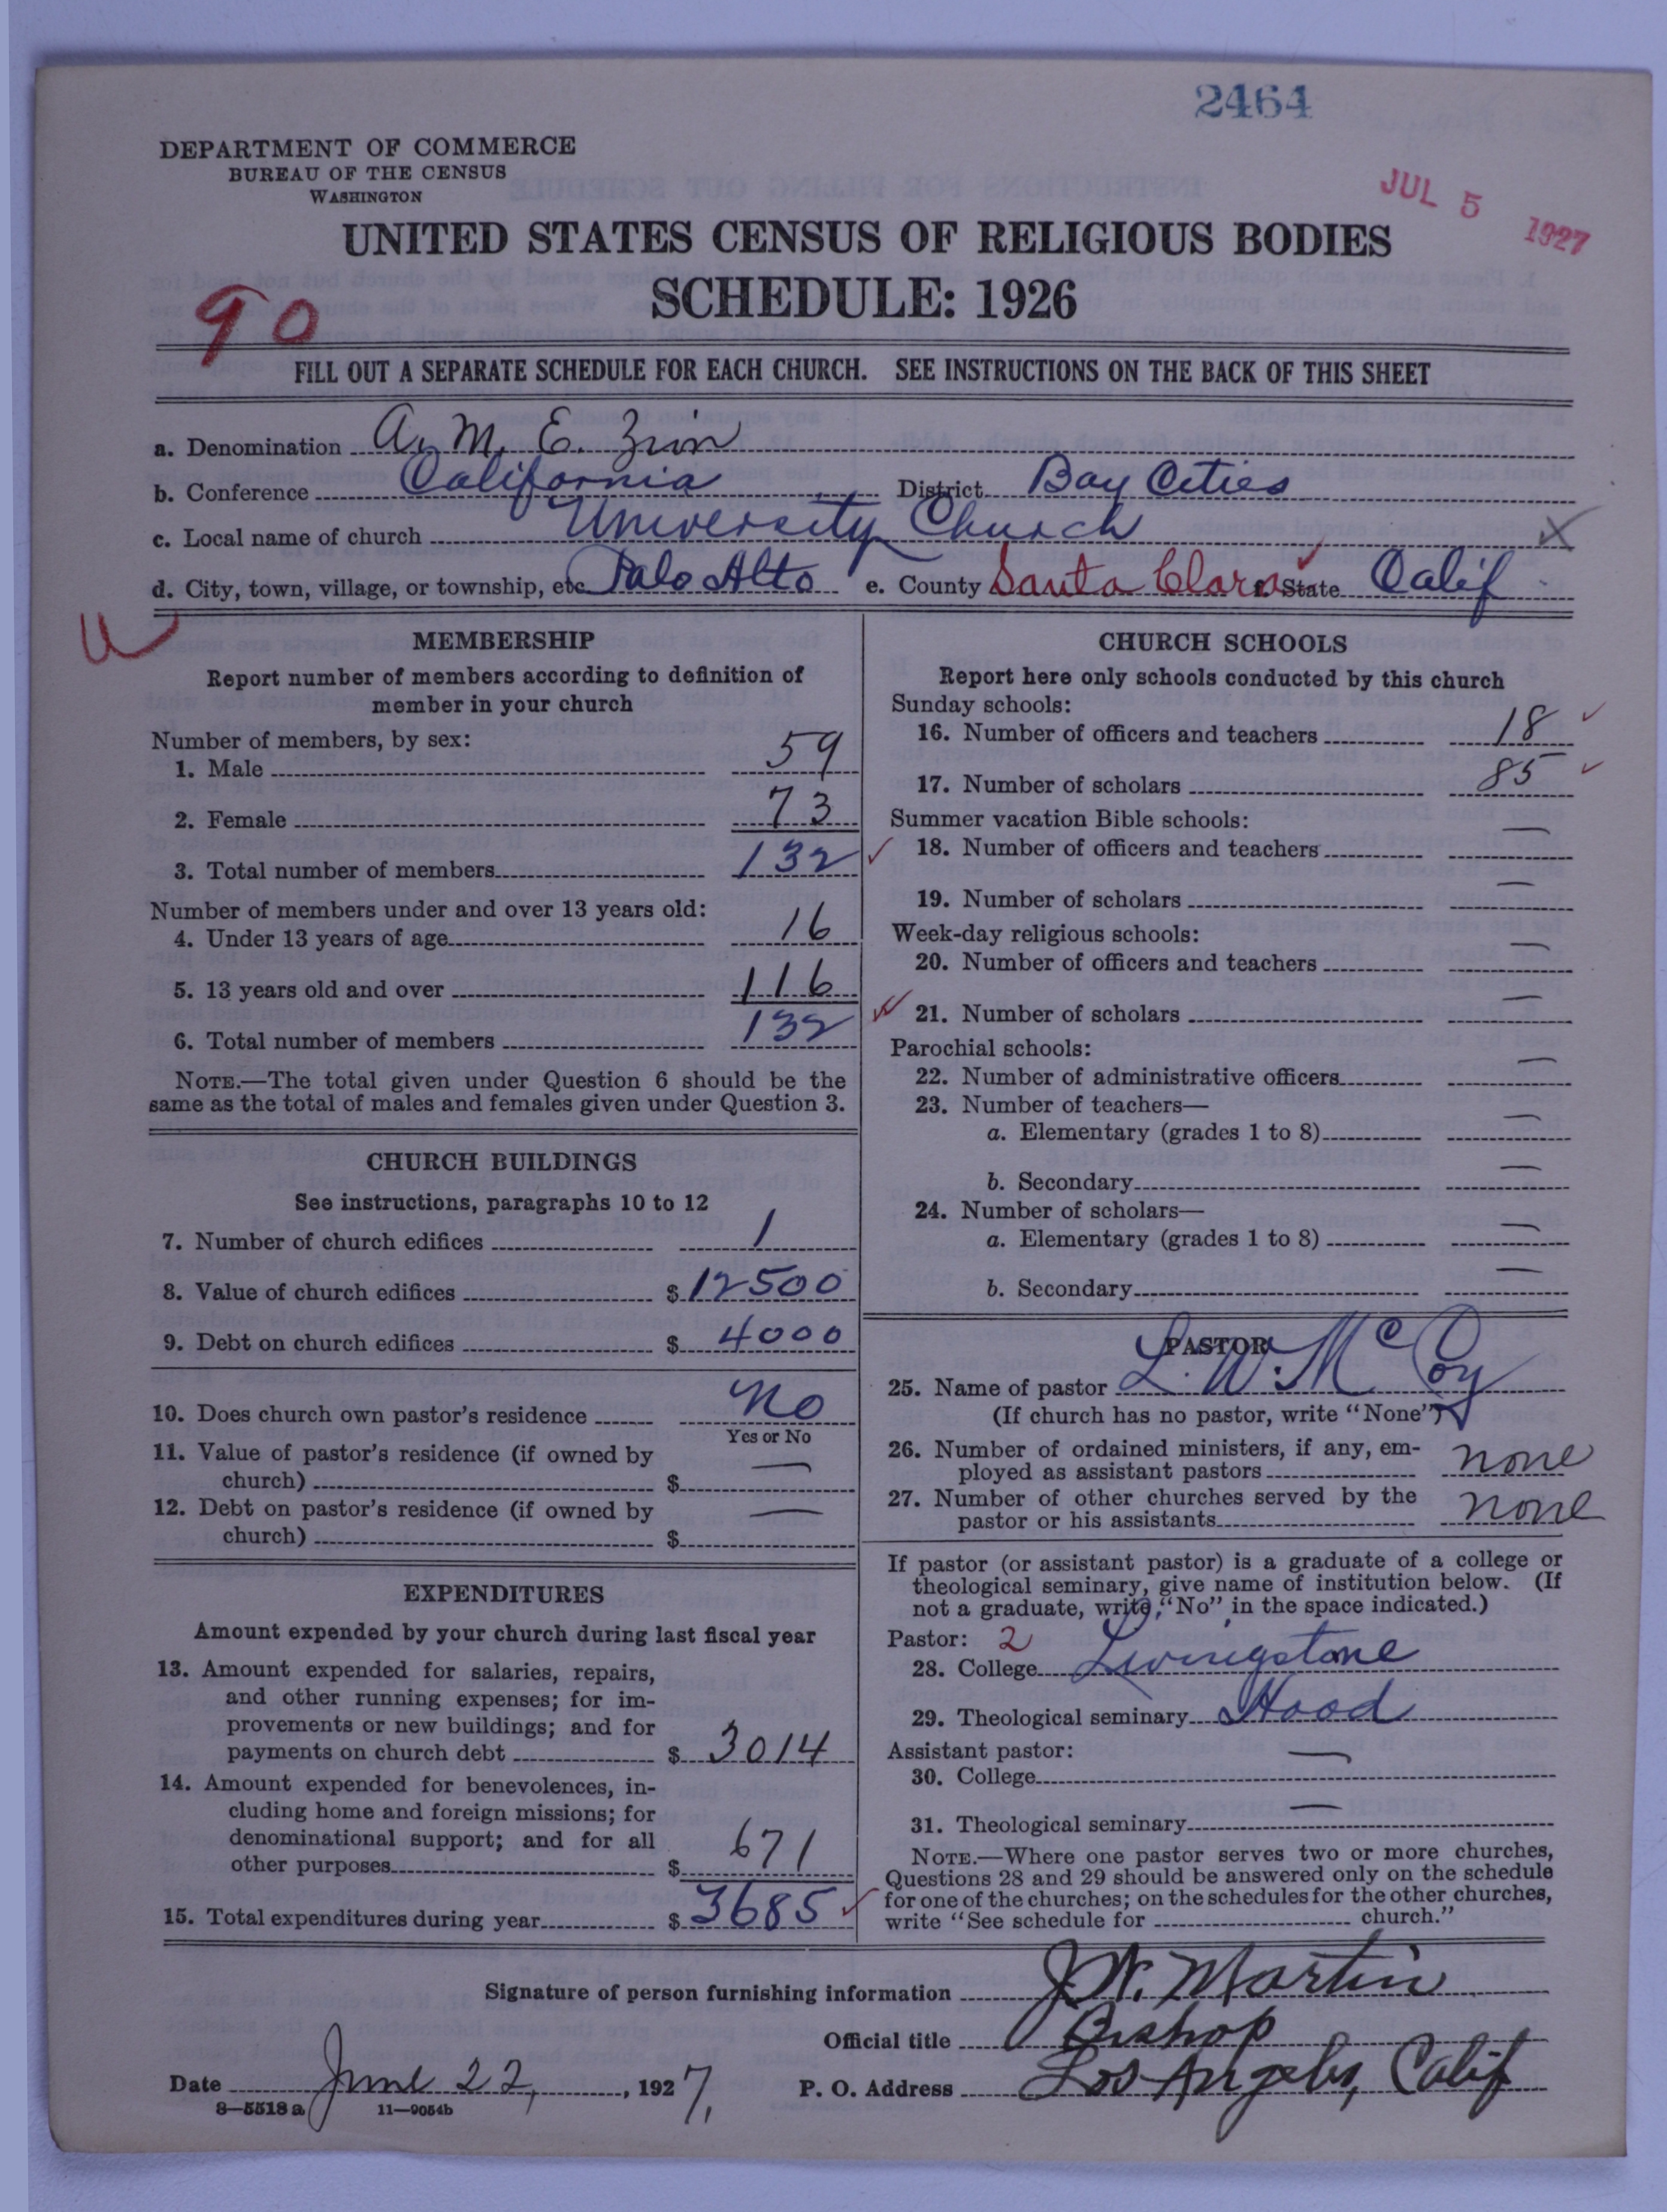 2464
DEPARTMENT OF COMMERCE
BUREAU OF THE CENSUS
WASHINGTON
JUL 5 1927
UNITED STATES CENSUS OF RELIGIOUS BODIES
SCHEDULE: 1926
90
FILL OUT A SEPARATE SCHEDULE FOR EACH CHURCH. SEE INSTRUCTIONS ON THE BACK OF THIS SHEET
a. Denomination A. M. E. Zion
b. Conference California District Bay Cities
c. Local name of church University Church X
d. City, town, village, or township, etc Palo Alto e. County Santa Clara f. State Calif
MEMBERSHIP
Report number of members according to definition of
member in your church
Number of members, by sex:
1. Male 59
2. Female 73
3. Total number of members 132
Number of members under and over 13 years old:
4. Under 13 years of age 16
5. 13 years old and over 116
6. Total number of members 132
NOTE.—The total given under Question 6 should be the
same as the total of males and females given under Question 3.
CHURCH BUILDINGS
See instructions, paragraphs 10 to 12
7. Number of church edifices 1
8. Value of church edifices $ 12500
9. Debt on church edifices $ 4000
10. Does church own pastor's residence No
Yes or No
11. Value of pastor's residence (if owned by
church) $ —
12. Debt on pastor's residence (if owned by
church) $ —
EXPENDITURES
Amount expended by your church during last fiscal year
13. Amount expended for salaries, repairs,
and other running expenses; for im-
provements or new buildings; and for
payments on church debt $ 3014
14. Amount expended for benevolences, in-
cluding home and foreign missions; for
denominational support; and for all
other purposes $ 671
15. Total expenditures during year $ 3685
CHURCH SCHOOLS
Report here only schools conducted by this church
Sunday schools:
16. Number of officers and teachers 18
17. Number of scholars 85
Summer vacation Bible schools:
18. Number of officers and teachers —
19. Number of scholars —
Week-day religious schools:
20. Number of officers and teachers —
21. Number of scholars —
Parochial schools:
22. Number of administrative officers —
23. Number of teachers—
a. Elementary (grades 1 to 8) —
b. Secondary —
24. Number of scholars—
a. Elementary (grades 1 to 8) —
b. Secondary —
PASTOR
25. Name of pastor L. W. McCoy
(If church has no pastor, write "None")
26. Number of ordained ministers, if any, em-
ployed as assistant pastors none
27. Number of other churches served by the
pastor or his assistants none
If pastor (or assistant pastor) is a graduate of a college or
theological seminary, give name of institution below. (If
not a graduate, write, "No" in the space indicated.)
Pastor: 2
28. College Livingstone
29. Theological seminary Hood
Assistant pastor:
30. College —
31. Theological seminary —
NOTE.—Where one pastor serves two or more churches,
Questions 28 and 29 should be answered only on the schedule
for one of the churches; on the schedules for the other churches,
write "See schedule for church."
Signature of person furnishing information J. W. Martin
Official title Bishop
Date June 22, 1927, P. O. Address Los Angeles, Calif
8—5518 a 11—9054b